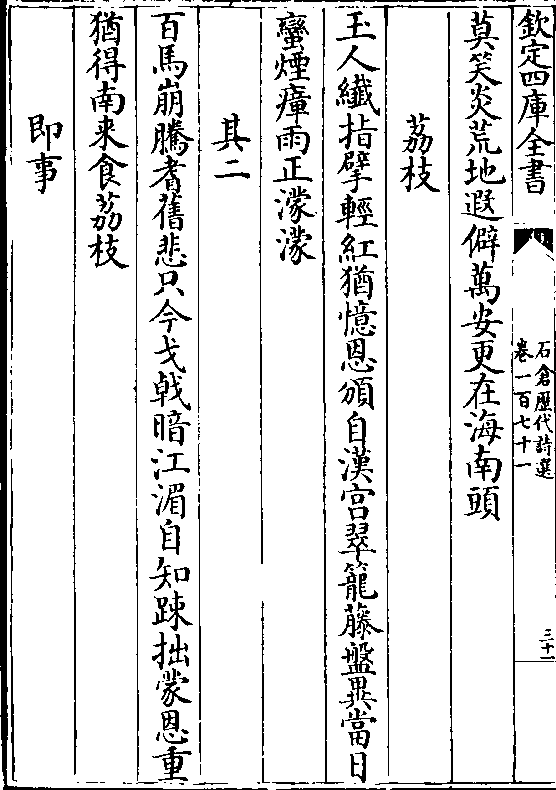 欽定四庫全書
石倉歷代詩選
卷一百七十一
三十一
莫笑炎荒地遐僻萬安更在海南頭
荔枝
玉人纖指擘輕紅猶憶恩頒自漢宮翠籠藤盤異當日
蠻煙瘴雨正濛濛
其二
百馬崩騰耆舊悲只今戈戟暗江湄自知踈拙蒙恩重
猶得南来食荔枝
即事